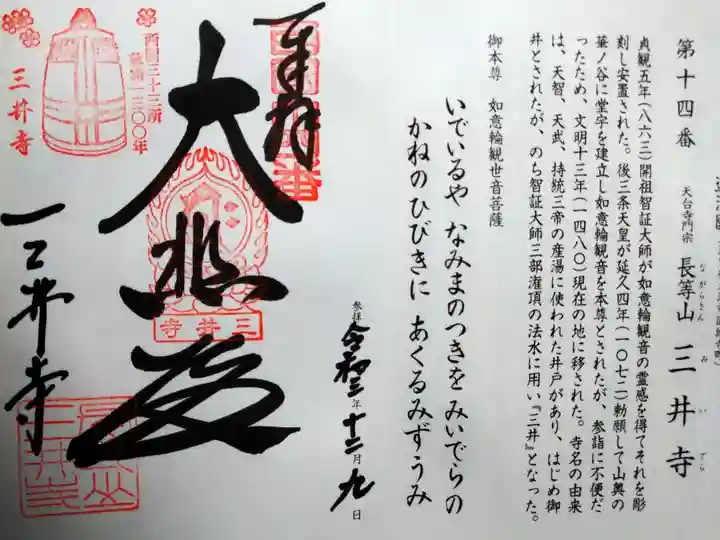 第十四番
天台寺門宗 長等山 三井寺
ながらさん みいでら
貞観五年(八六三)開祖智証大師が如意輪観音の霊感を得てそれを彫
刻し安置された。後三条天皇が延久四年(一〇七二)勅願して山奥の
華ノ谷に堂宇を建立し如意輪観音を本尊とされたが、参詣に不便だ
ったため、文明十三年(一四八〇)現在の地に移された。寺名の由来
は、天智、天武、持統三帝の産湯に使われた井戸があり、はじめ御
井とされたが、のち智証大師三部潅頂の法水に用い『三井』となった。
御本尊 如意輪観世音菩薩
いでいるや なみまのつきを みいでらの
かねのひびきに あくるみずうみ
参拝 令和三年十二月九日
奉拝
大悲殿
三井寺
西国三十三所
草創一三〇〇年
三井寺
三井寺